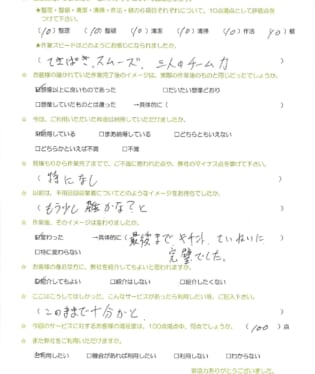 ★整理・整頓・清潔・清掃・作法・躾の6項目それぞれについて、10点満点として評価点を
つけて下さい。
(10)整理 (10)整頓 (10)清潔 (10)清掃 (10)作法 (10)躾
★作業スピードはどのようにお感じになられましたか。
(てきぱき、スムーズ、三人のチーム力)
☆ お客様の描かれていた作業完了後のイメージは、実際の作業後のものと同じだったでしょうか。
☑想像以上に良いものであった □だいたい想像どおり
□想像していたものとは違った →具体的に( )
☆ 今は、ご利用いただいた料金は納得していただけましたか。
☑納得している □まあ納得している □どちらともいえない
□どちらかといえば不満 □不満
☆ 見積もりから作業完了までで、ご不満に思われた点や、弊社のマイナス点を挙げて下さい。
(特になし)
☆ 以前は、不用品回収業者についてどのようなイメージをお持ちでしたか。
(もう少し雑かな?と)
☆ 作業後、そのイメージは変わりましたか。
☑変わった →具体的に(最後まで、キチント、ていねいに
□特に変わらない 完璧でした。
☆ お客様の身近な方に、弊社を紹介してもよいと思われますか。
☑紹介してもよい □紹介はしない □紹介したくない
☆ ここはこうしてほしかった、こんなサービスがあったら利用したい等、ご記入下さい。
(このままで十分かと。)
☆ 今回のサービスに対するお客様の満足度は、100点満点中、何点でしょうか。(100)点
☆ また弊社をご利用いただけますか。
☑利用したい □機会があれば利用したい □利用しない □わからない
ご協力ありがとうございました。